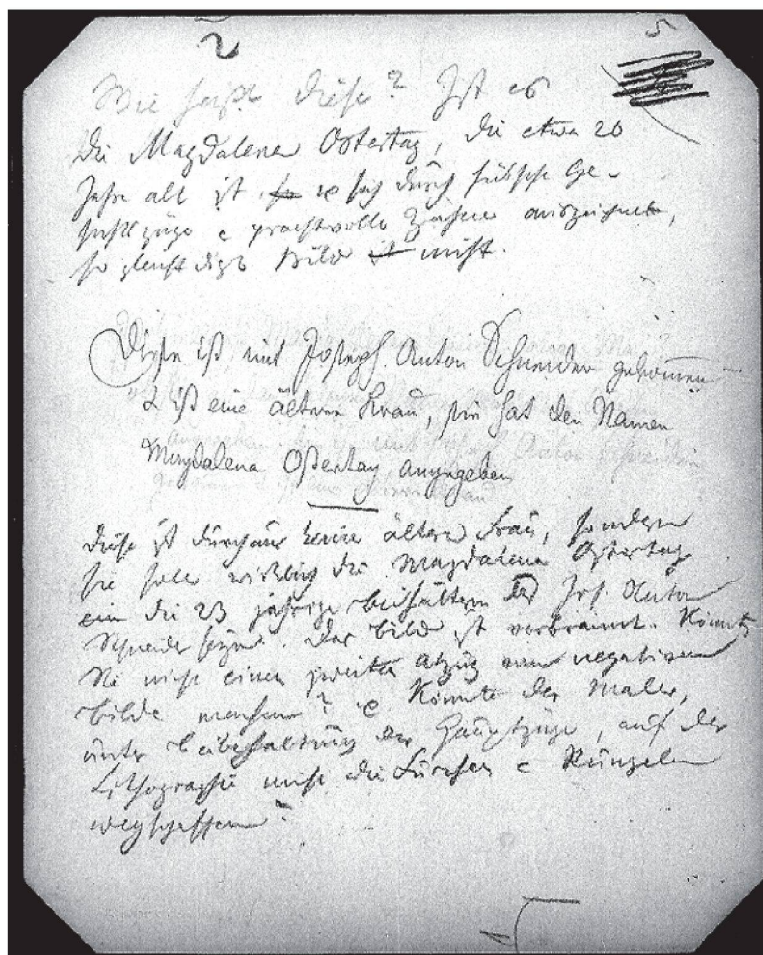 2
5
Wie heißt diese? Ist es
die Magdalena Ostertag, die etwa 20
Jahr alt ist & sich durch hübsche Ge-
sichtszüge & prachtvolle Zähne auszeichnet,
so gleicht dies Bild nicht.
Diese ist mit Joseph Anton Schneider gekommen
& ist eine ältere Frau, sie hat den Namen
Magdalena Ostertag angegeben
diese ist durchaus keine ältere Frau, sondern
sie soll wirklich die Magdalena Ostertag
die 23 jährige Beihälterin des Jos. Anton
Schneider seyn. Das Bild ist verbrannt. Könnte
nicht einen zweiten Abzug vom negativen
Bilde machen? & Könnte der Maler,
unter Beibehaltung der Hauptzüge, auf der
Lithographie nicht die Furchen & Runzeln
wegschaffen?